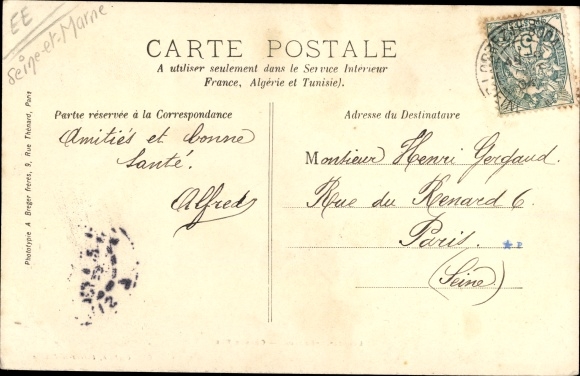 EE
Seine-et-Marne
CARTE POSTALE
A utiliser seulement dans le Service Intérieur
France, Algérie et Tunisie).
Partie réservée à la Correspondance
Amitiés et bonne
Santé.
Alfred
Adresse du Destinataire
Monsieur Henri Gergaud.
Rue du Renard 6.
Paris.
(Seine)
Phototypie A Breger frères, 9, Rue Thénard, Paris